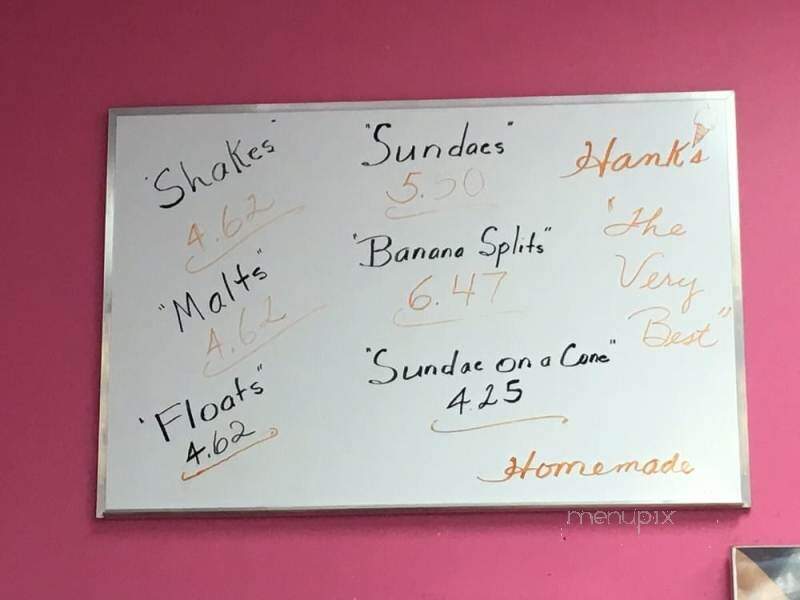 "Shakes"
4.62
"Malts"
4.62
"Floats"
4.62
"Sundaes"
5.50
"Banana Splits"
6.47
"Sundae on a Cone"
4.25
Hank's
"The
Very
Best"
Homemade
menupix